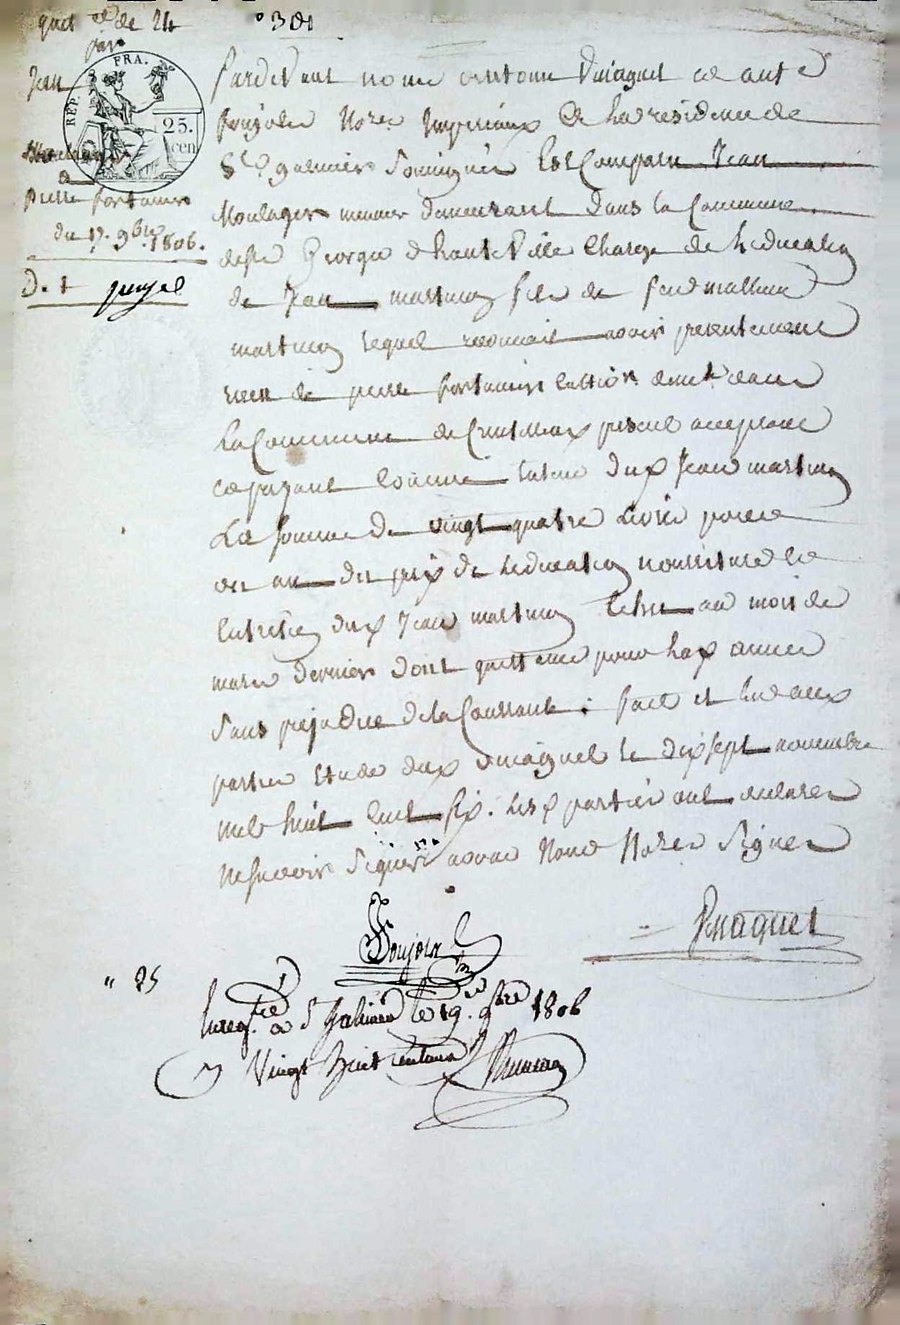 quit ce de 24
n° 301
par
Jean
RÉP. FRA.
25. cen
Moulager
a
Pierre fontanier
du 17. 9bre 1806.
D. t poujol
Pardevant nous antoine Puiaguet et
poujol Notres Imperiaux a la residence de
St. galmier Soussignés Est Comparu Jean
Moulager meunier demeurant dans la Commune
de St George d'hauteville Charge de leducation
de Jean martin fils de feu mathieu
martin lequel reconnait avoir presentement
recu de pierre fontanier cultivr demt dans
la Commune de present acceptant
et payant comme tuteur dud Jean martin
La somme de vingt quatre livres pour
un an du prix de leducation nourriture et
Entretien dud Jean martin Echu au mois de
mars dernier dont quittance pour lad annee
Sans prejudice de la Courante : fait et lu aux
parties Etude dud puiaguet le dix sept novembre
mil huit cent six. Les parties ont declarer
ne scavoir Signer avons Nous Notres Signer
Poujol
Puiaguet
" 25
Enreg.tré a St Galmier le 19. 9bre 1806
Vingt huit centimes